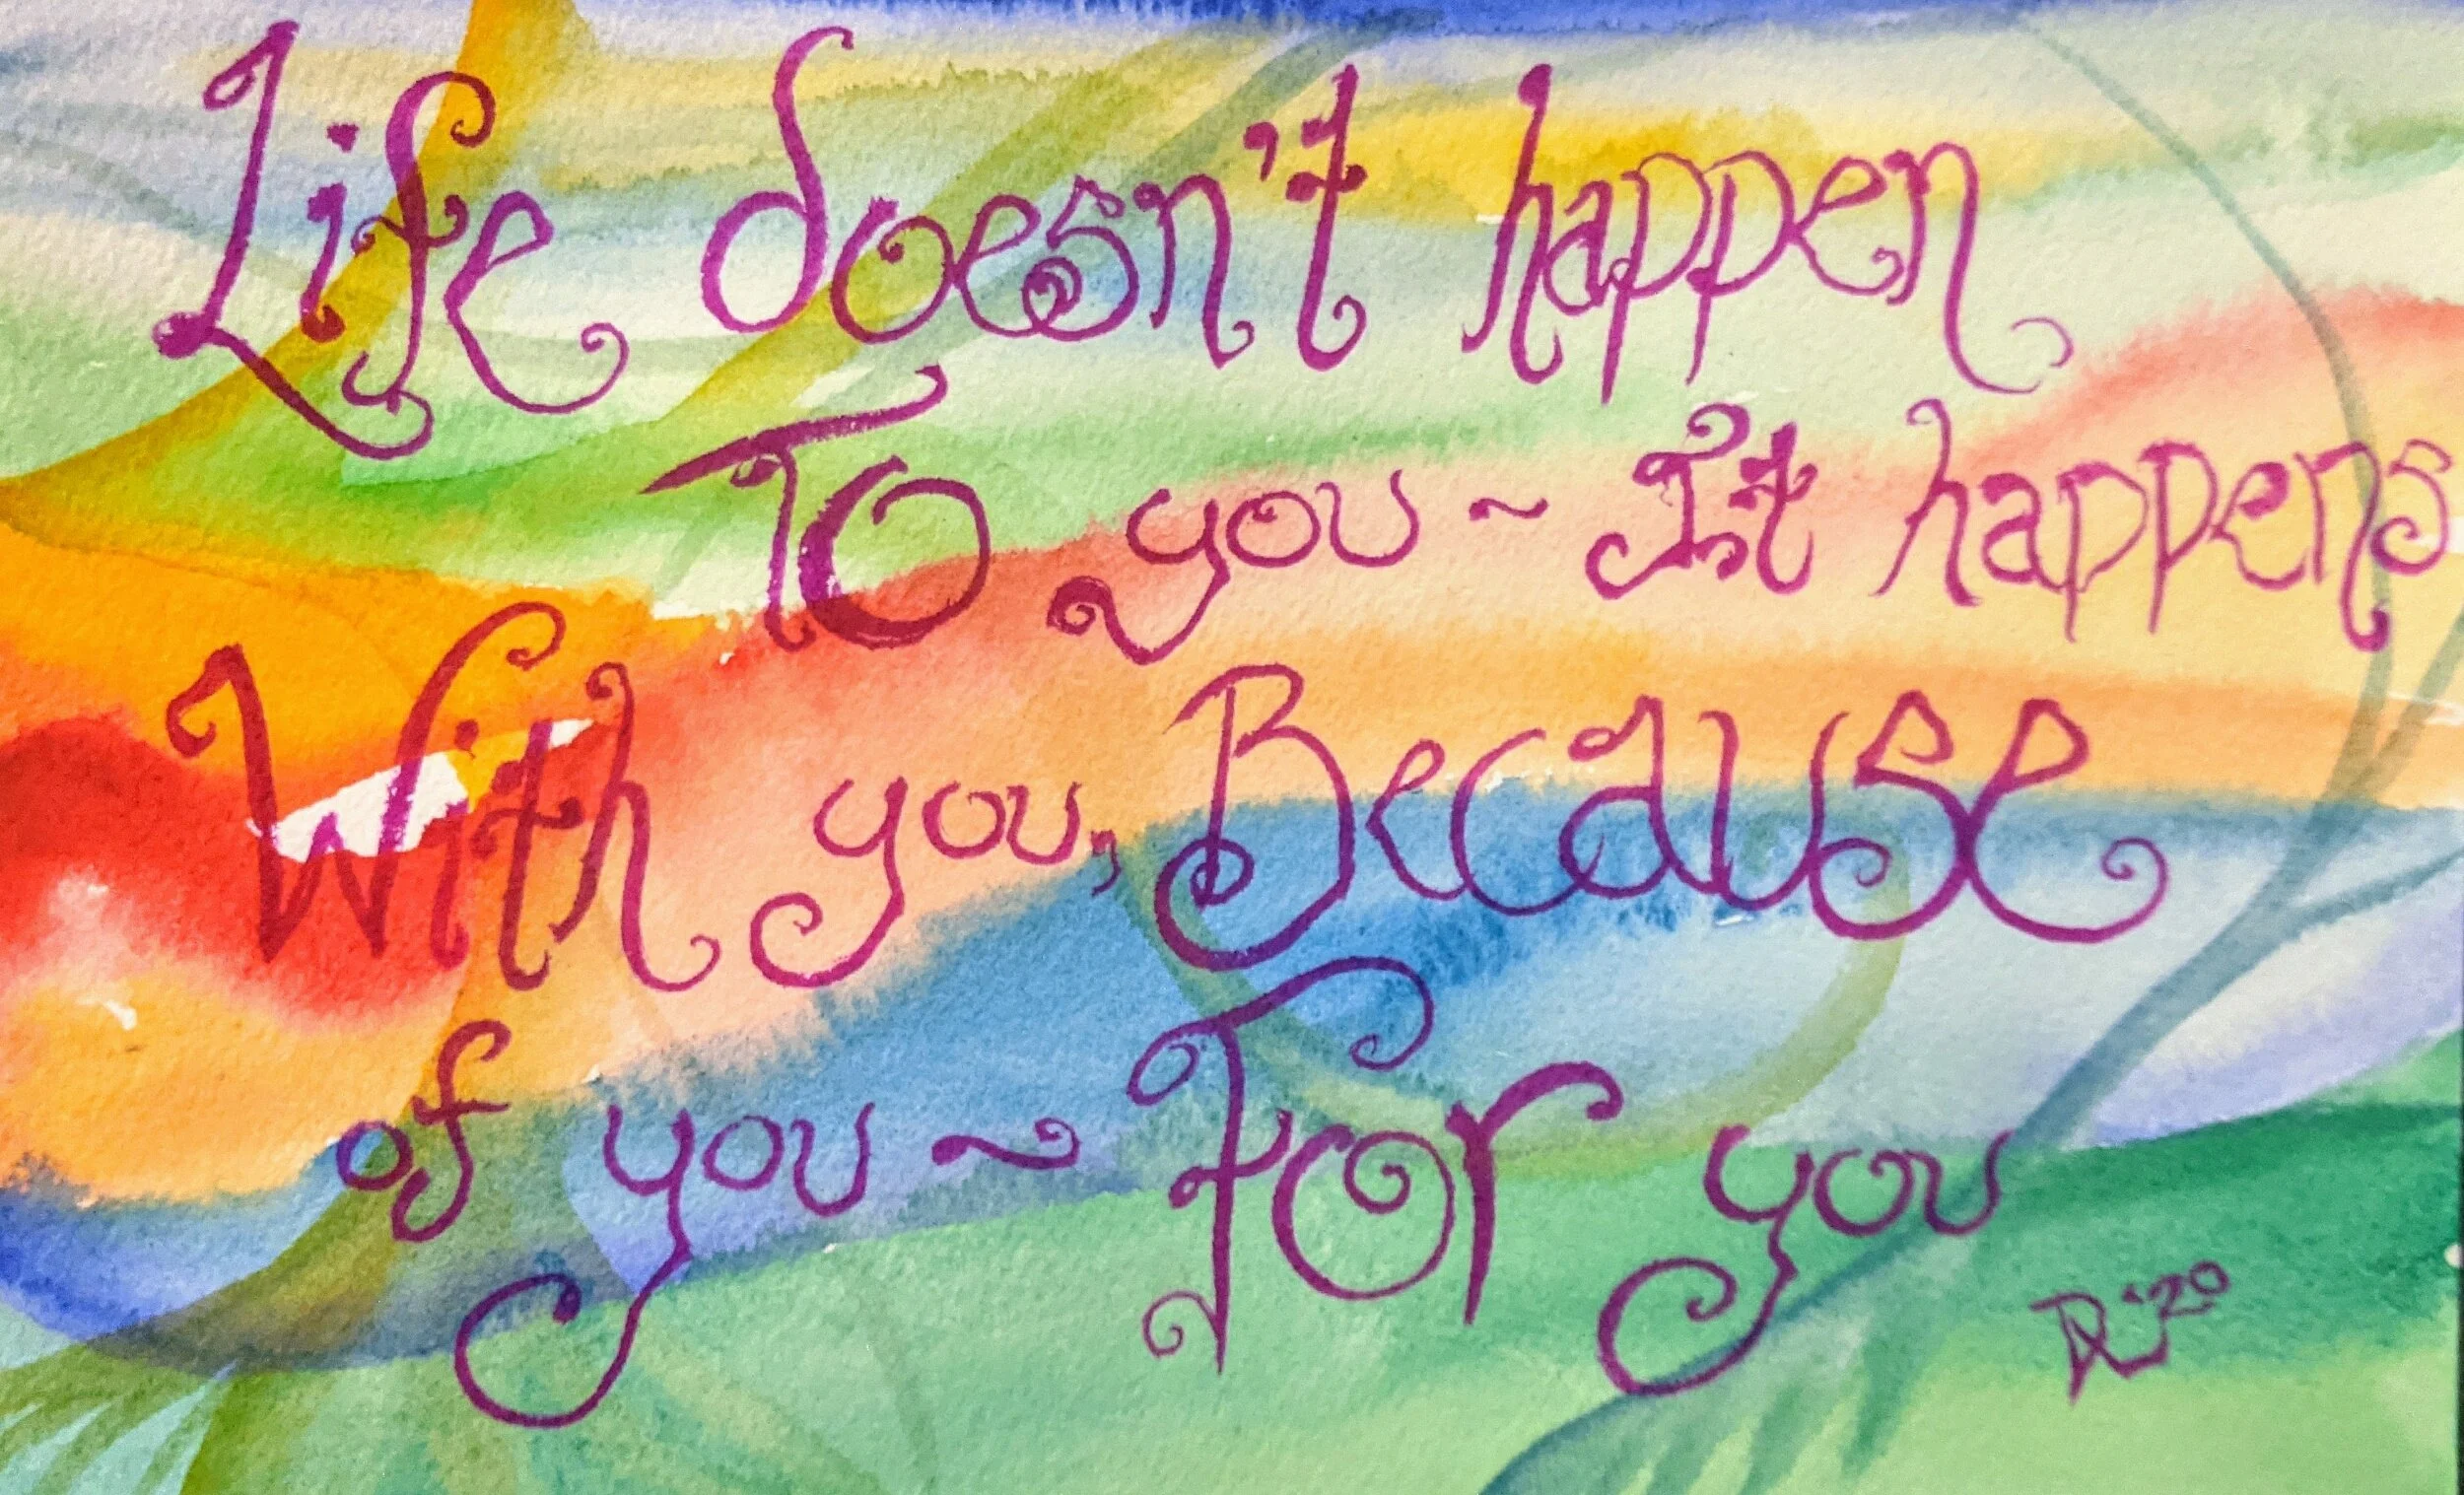 Life doesn't happen
To you ~ It happens
With you, Because
of you ~ For you
'20